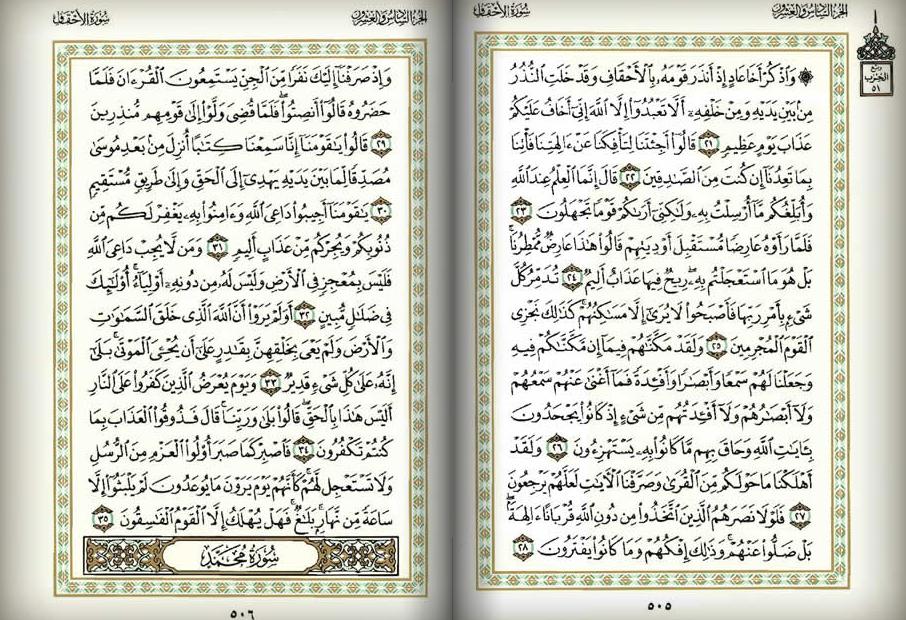 الجزء السادس والعشرون
سورة الأحقاف
ربع
الحزب
٥١
۞ وَٱذْكُرْ أَخَا عَادٍ إِذْ أَنذَرَ قَوْمَهُۥ بِٱلْأَحْقَافِ وَقَدْ خَلَتِ ٱلنُّذُرُ
مِنۢ بَيْنِ يَدَيْهِ وَمِنْ خَلْفِهِۦٓ أَلَّا تَعْبُدُوٓا۟ إِلَّا ٱللَّهَ إِنِّىٓ أَخَافُ عَلَيْكُمْ
عَذَابَ يَوْمٍ عَظِيمٍ ٢١ قَالُوٓا۟ أَجِئْتَنَا لِتَأْفِكَنَا عَنْ ءَالِهَتِنَا فَأْتِنَا
بِمَا تَعِدُنَآ إِن كُنتَ مِنَ ٱلصَّـٰدِقِينَ ٢٢ قَالَ إِنَّمَا ٱلْعِلْمُ عِندَ ٱللَّهِ
وَأُبَلِّغُكُم مَّآ أُرْسِلْتُ بِهِۦ وَلَـٰكِنِّىٓ أَرَىٰكُمْ قَوْمًا تَجْهَلُونَ ٢٣
فَلَمَّا رَأَوْهُ عَارِضًا مُّسْتَقْبِلَ أَوْدِيَتِهِمْ قَالُوا۟ هَـٰذَا عَارِضٌ مُّمْطِرُنَا ۚ
بَلْ هُوَ مَا ٱسْتَعْجَلْتُم بِهِۦ ۖ رِيحٌ فِيهَا عَذَابٌ أَلِيمٌ ٢٤ تُدَمِّرُ كُلَّ
شَىْءٍۭ بِأَمْرِ رَبِّهَا فَأَصْبَحُوا۟ لَا يُرَىٰٓ إِلَّا مَسَـٰكِنُهُمْ ۚ كَذَٰلِكَ نَجْزِى
ٱلْقَوْمَ ٱلْمُجْرِمِينَ ٢٥ وَلَقَدْ مَكَّنَّـٰهُمْ فِيمَآ إِن مَّكَّنَّـٰكُمْ فِيهِ
وَجَعَلْنَا لَهُمْ سَمْعًا وَأَبْصَـٰرًا وَأَفْـِٔدَةً فَمَآ أَغْنَىٰ عَنْهُمْ سَمْعُهُمْ
وَلَآ أَبْصَـٰرُهُمْ وَلَآ أَفْـِٔدَتُهُم مِّن شَىْءٍ إِذْ كَانُوا۟ يَجْحَدُونَ
بِـَٔايَـٰتِ ٱللَّهِ وَحَاقَ بِهِم مَّا كَانُوا۟ بِهِۦ يَسْتَهْزِءُونَ ٢٦ وَلَقَدْ
أَهْلَكْنَا مَا حَوْلَكُم مِّنَ ٱلْقُرَىٰ وَصَرَّفْنَا ٱلْـَٔايَـٰتِ لَعَلَّهُمْ يَرْجِعُونَ
٢٧ فَلَوْلَا نَصَرَهُمُ ٱلَّذِينَ ٱتَّخَذُوا۟ مِن دُونِ ٱللَّهِ قُرْبَانًا ءَالِهَةًۢ ۖ
بَلْ ضَلُّوا۟ عَنْهُمْ ۚ وَذَٰلِكَ إِفْكُهُمْ وَمَا كَانُوا۟ يَفْتَرُونَ ٢٨
٥٠٥
الجزء السادس والعشرون
سورة الأحقاف
وَإِذْ صَرَفْنَآ إِلَيْكَ نَفَرًا مِّنَ ٱلْجِنِّ يَسْتَمِعُونَ ٱلْقُرْءَانَ فَلَمَّا
حَضَرُوهُ قَالُوٓا۟ أَنصِتُوا۟ ۖ فَلَمَّا قُضِىَ وَلَّوْا۟ إِلَىٰ قَوْمِهِم مُّنذِرِينَ
٢٩ قَالُوا۟ يَـٰقَوْمَنَآ إِنَّا سَمِعْنَا كِتَـٰبًا أُنزِلَ مِنۢ بَعْدِ مُوسَىٰ
مُصَدِّقًا لِّمَا بَيْنَ يَدَيْهِ يَهْدِىٓ إِلَى ٱلْحَقِّ وَإِلَىٰ طَرِيقٍ مُّسْتَقِيمٍ
٣٠ يَـٰقَوْمَنَآ أَجِيبُوا۟ دَاعِىَ ٱللَّهِ وَءَامِنُوا۟ بِهِۦ يَغْفِرْ لَكُم مِّن
ذُنُوبِكُمْ وَيُجِرْكُم مِّنْ عَذَابٍ أَلِيمٍ ٣١ وَمَن لَّا يُجِبْ دَاعِىَ ٱللَّهِ
فَلَيْسَ بِمُعْجِزٍ فِى ٱلْأَرْضِ وَلَيْسَ لَهُۥ مِن دُونِهِۦٓ أَوْلِيَآءُ ۚ أُو۟لَـٰٓئِكَ
فِى ضَلَـٰلٍ مُّبِينٍ ٣٢ أَوَلَمْ يَرَوْا۟ أَنَّ ٱللَّهَ ٱلَّذِى خَلَقَ ٱلسَّمَـٰوَٰتِ
وَٱلْأَرْضَ وَلَمْ يَعْىَ بِخَلْقِهِنَّ بِقَـٰدِرٍ عَلَىٰٓ أَن يُحْـِۧىَ ٱلْمَوْتَىٰ ۚ بَلَىٰٓ
إِنَّهُۥ عَلَىٰ كُلِّ شَىْءٍ قَدِيرٌ ٣٣ وَيَوْمَ يُعْرَضُ ٱلَّذِينَ كَفَرُوا۟ عَلَى ٱلنَّارِ
أَلَيْسَ هَـٰذَا بِٱلْحَقِّ ۖ قَالُوا۟ بَلَىٰ وَرَبِّنَا ۚ قَالَ فَذُوقُوا۟ ٱلْعَذَابَ بِمَا
كُنتُمْ تَكْفُرُونَ ٣٤ فَٱصْبِرْ كَمَا صَبَرَ أُو۟لُوا۟ ٱلْعَزْمِ مِنَ ٱلرُّسُلِ
وَلَا تَسْتَعْجِل لَّهُمْ ۚ كَأَنَّهُمْ يَوْمَ يَرَوْنَ مَا يُوعَدُونَ لَمْ يَلْبَثُوٓا۟ إِلَّا
سَاعَةً مِّن نَّهَارٍۭ ۚ بَلَـٰغٌ ۚ فَهَلْ يُهْلَكُ إِلَّا ٱلْقَوْمُ ٱلْفَـٰسِقُونَ ٣٥
سُورَةُ مُحَمَّدٍ
٥٠٦